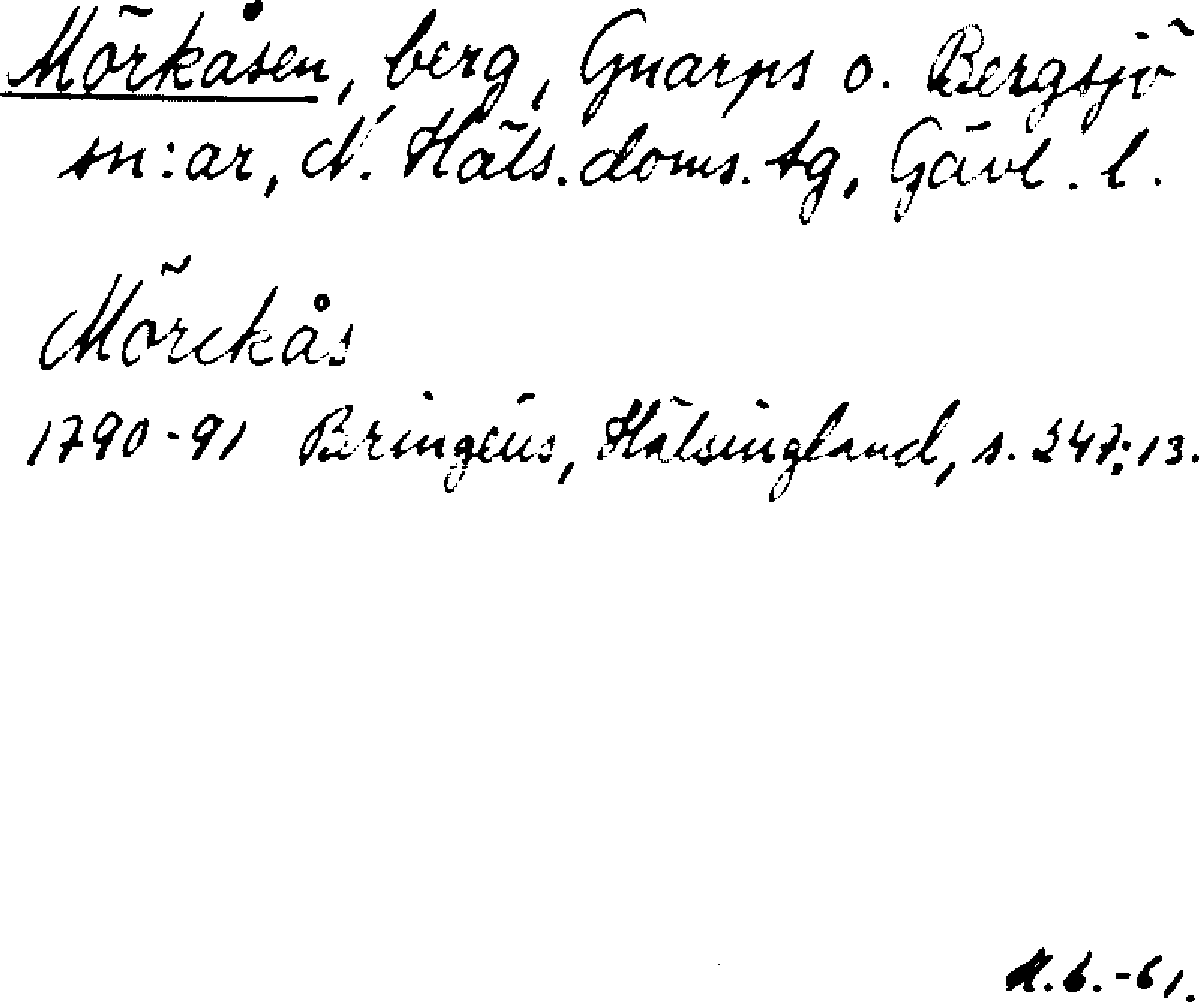 Mörkåsen, berg, Gnarps o. Bergsjö
sn:ar, N. Häls. doms. tg, Gävl. l.
Mörckås
1790-91 Bringéus, Hälsingland, s. 247:13.
-61.